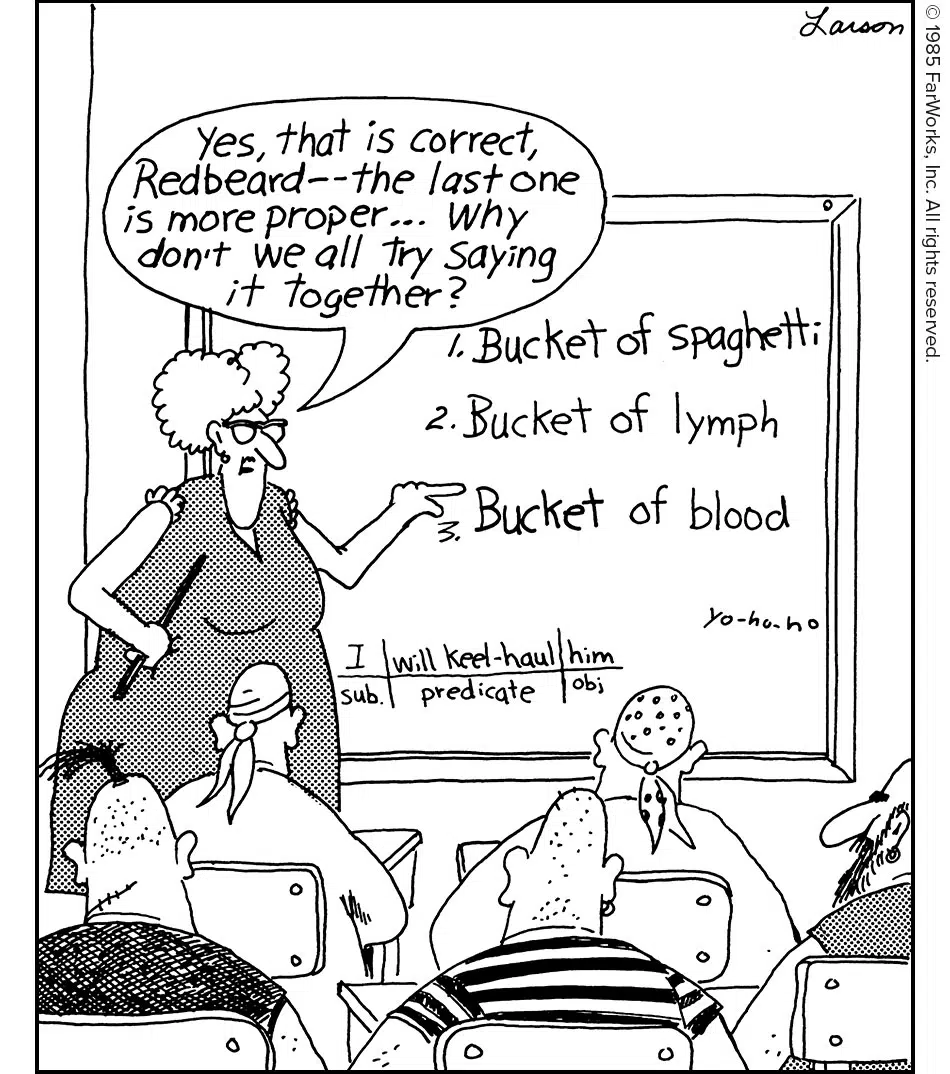 Larson
© 1985 FarWorks, Inc. All rights reserved.
Yes, that is correct,
Redbeard--the last one
is more proper... Why
don't we all try saying
it together?
1. Bucket of spaghetti
2. Bucket of lymph
3. Bucket of blood
yo-ho-ho
I will keel-haul him
sub. predicate obj